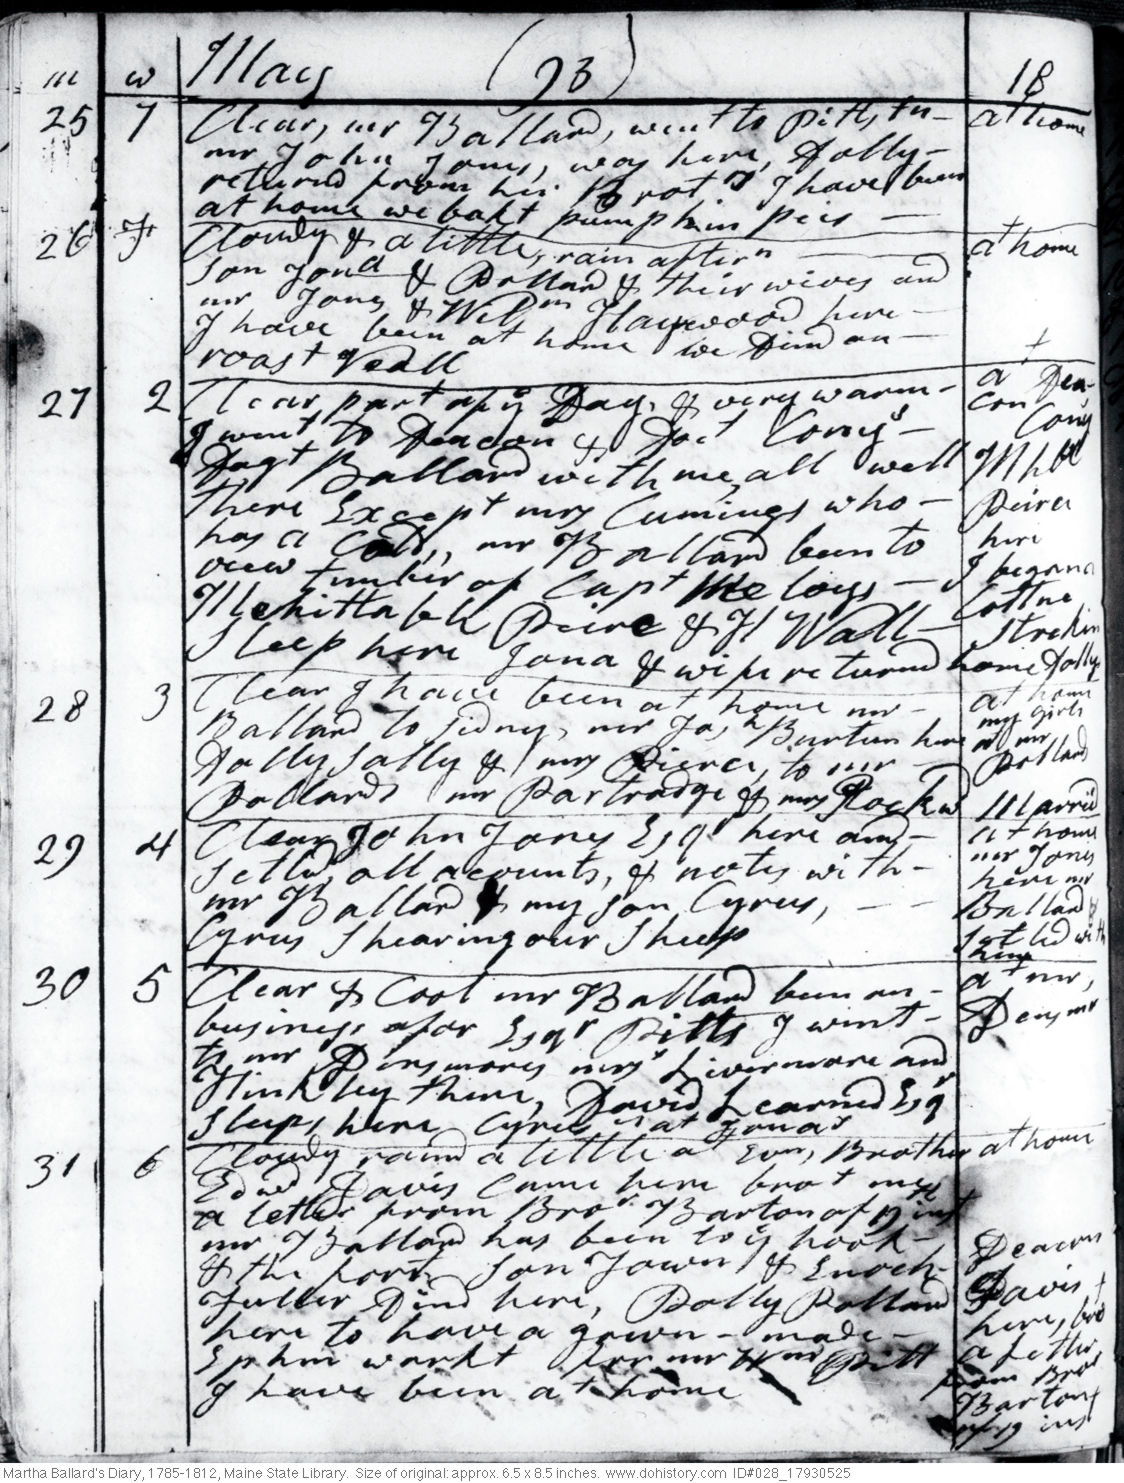 m w May (93) 18
25 7 Clear, mr Ballard, went to Pittstn- at home
mr John Jones, was here, Dolly-
returnd from his Brots I have been
at home we bakt pumpkin peis —
26 F Cloudy & a little, rain aftern at home
son Jona & Pollard & their wives and
mr Jones & Wilm Haywood here-
I have been at home we Dind on-
roast Veall
27 2 Clear part of ye Day, & very warm- at Dea-
con Conys
I went to Deacon & Doct Conys-
Dagt Ballard with me, all well Mhtl
there Except mrs Cumings who- Peirce
has a Cold, mr Ballard been to here
view timber of Capt Meloys- I began a
Mehittabell Peirce & H Wall- Cottne
Sleep here Jona & wife returned home Dolly
Strekin
28 3 Clear I have been at home mr- at home
Ballard to Sidney, mr Josh Burten here my girls
Dolly Sally & mrs Pierce, to mr at mr
Pollards mr Partradge & mrs Rockwd Pollard
Marrid
29 4 Clear John Jones Esqr here and- at home
setled, all acounts, & notes with- mr Jones
mr Ballard & my son Cyrus, — here mr
Cyrus Shearing our Sheep Ballard
Setled with
him
30 5 Clear & Cool mr Ballard been on- at mr,
business afor Esqr Pitts I went- Densmr
to mr Dinsmores mrs Livermore and
Hinkley there, David Learned Esqr
Sleeps, here Cyrus is at Jonas
31 6 Cloudy, raind a little at Evn, Brother at home
Edwd Davis Came here brot me
a letter from Bror Barton of 19 inst
mr Ballard has been to ye hook- Deacon
& the fort, son Town & Enoch- Davis
Fuller Dind here, Polly Pollard here, bro
here to have a gown - made - a letter
Ephm workt for mr Wm Pitt from Bror
I have been at home Barton
of 19 ins
Martha Ballard's Diary, 1785-1812, Maine State Library. Size of original: approx. 6.5 x 8.5 inches. www.dohistory.com ID#028_17930525